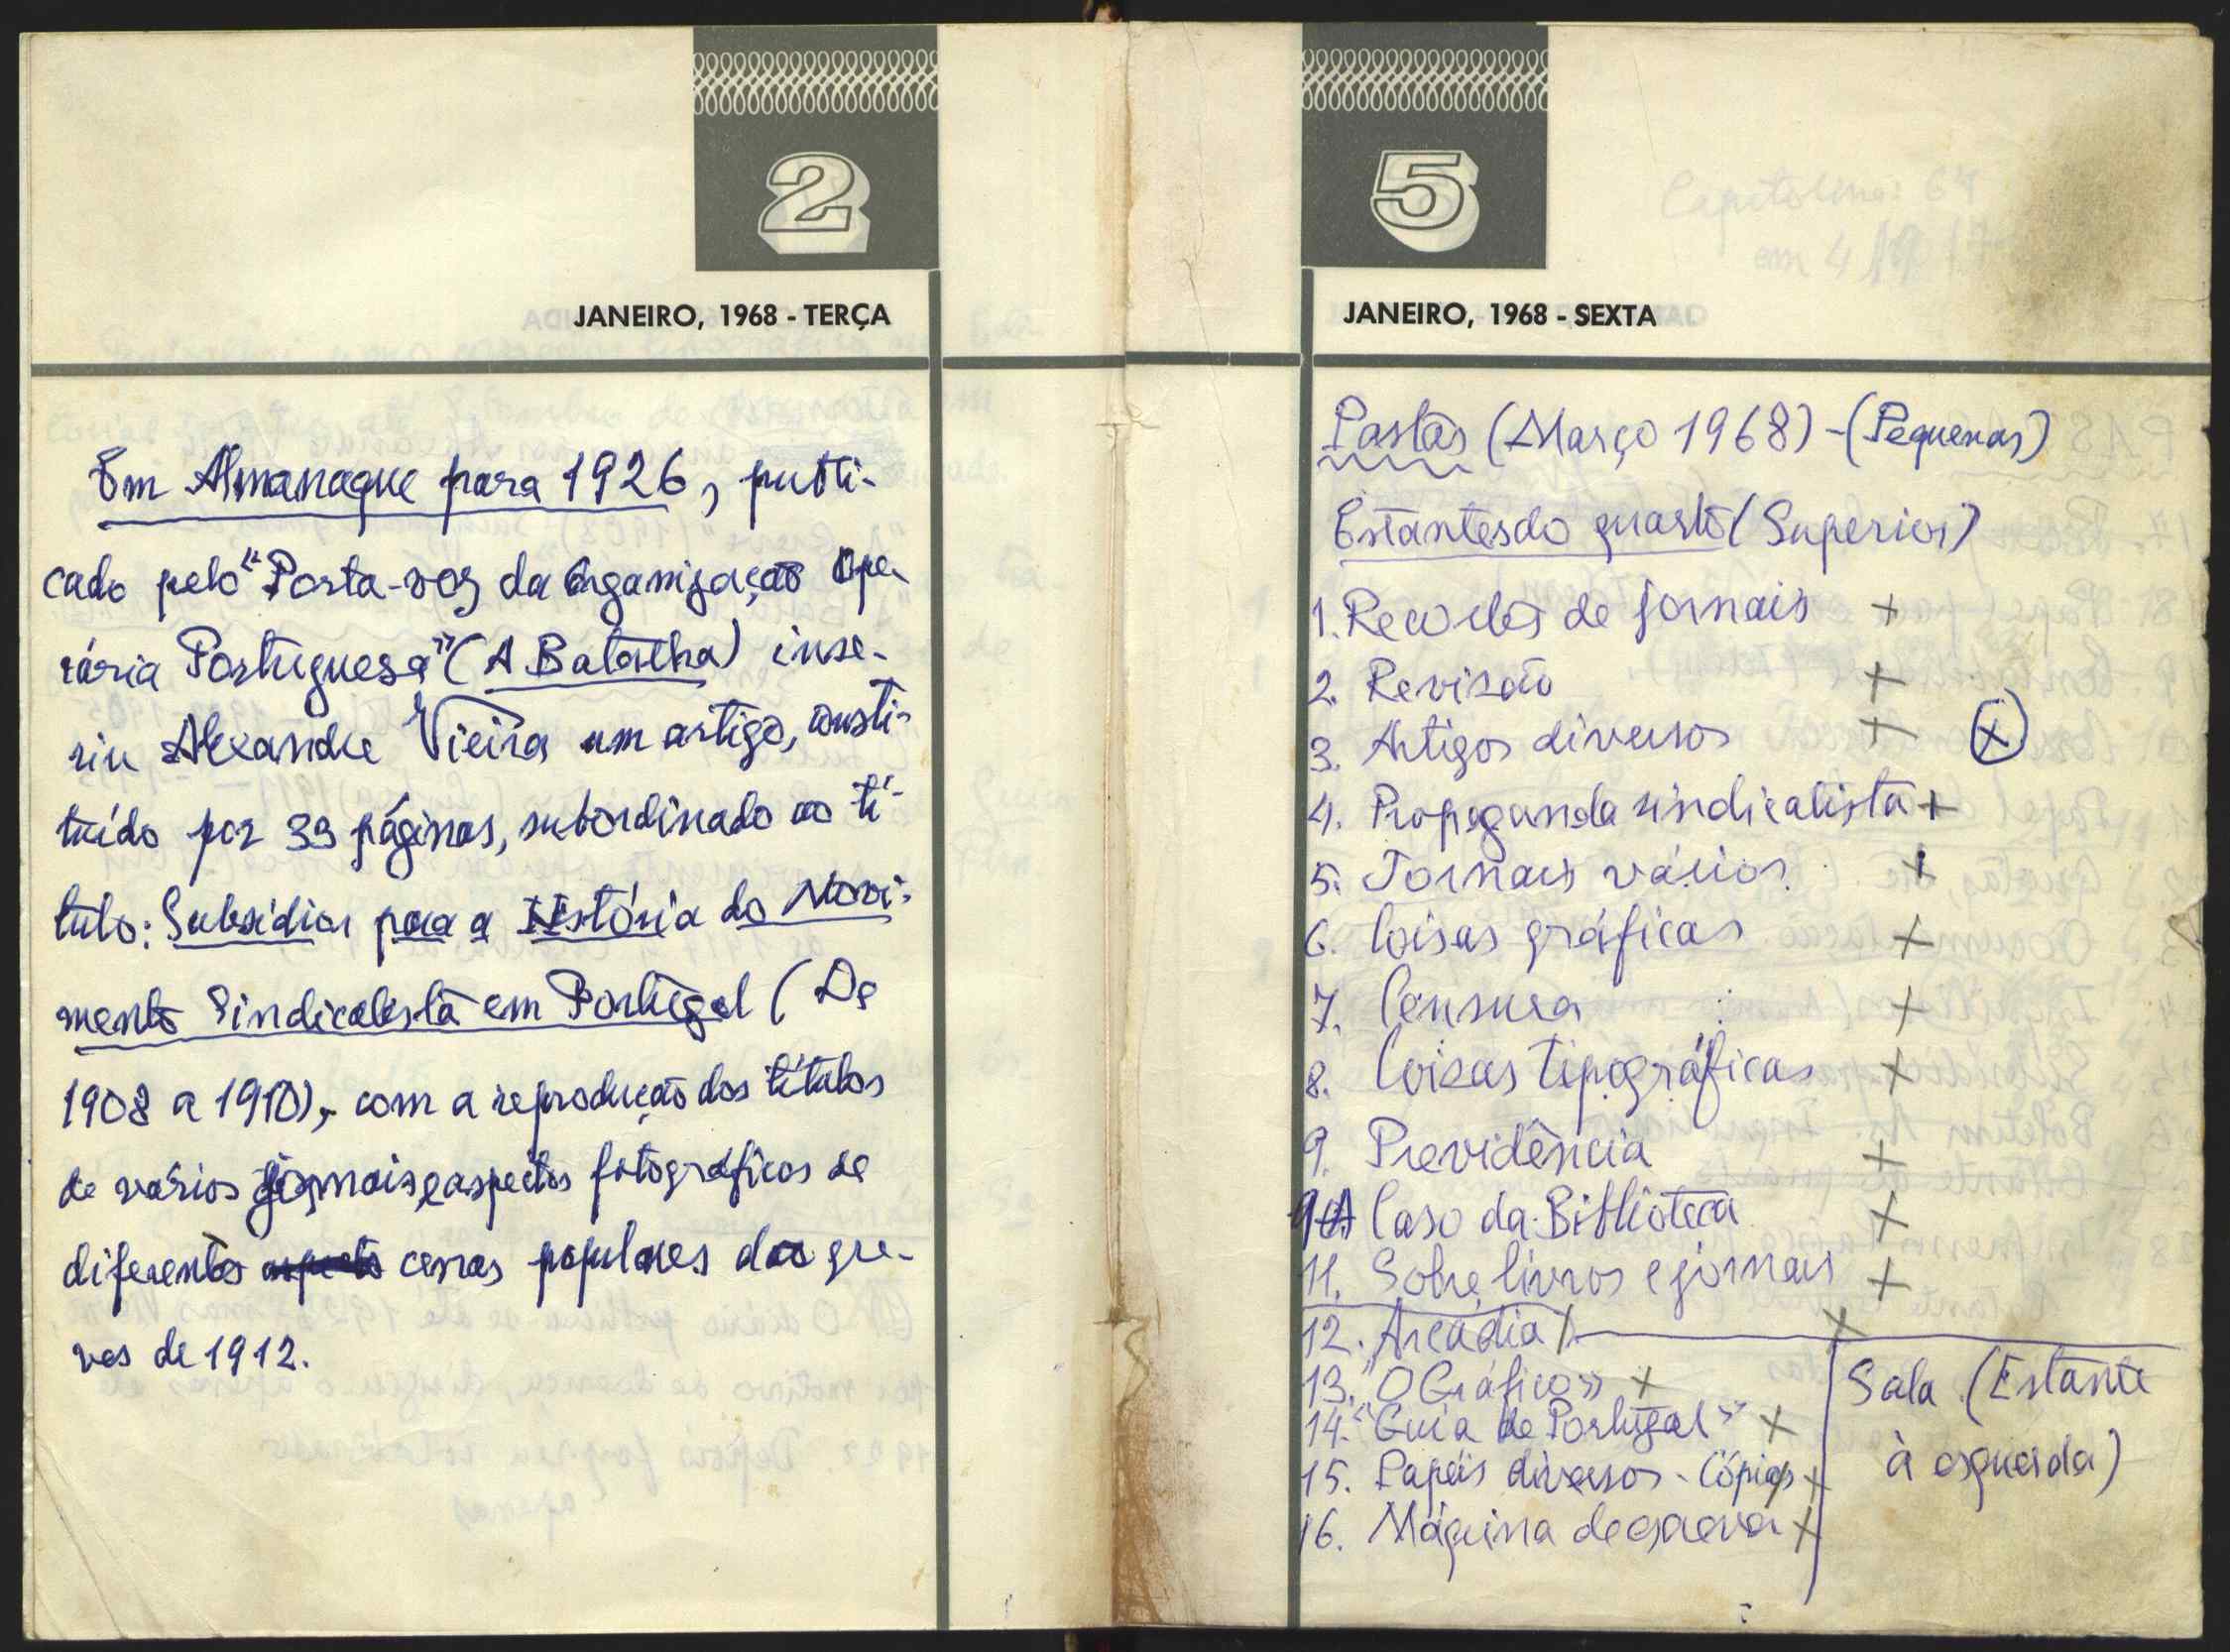 2
JANEIRO, 1968 - TERÇA
Em Almanaque para 1926, publi-
cado pelo "Porta-voz da Organização Ope-
rária Portuguesa" (A Batalha) inse-
riu Alexandre Vieira um artigo, consti-
tuído por 39 páginas, subordinado ao tí-
tulo: Subsídios para a História do Movi-
mento Sindicalista em Portugal (De
1908 a 1910), com a reprodução dos títulos
de vários jornais, e aspectos fotográficos de
diferentes cenas populares das gre-
ves de 1912.
5
Capitolina: 64
em 4
JANEIRO, 1968 - SEXTA
Pastas (Março 1968) - (Pequenas)
Estantes do quarto (Superior)
1. Recortes de jornais +
2. Revisão +
3. Artigos diversos + (+)
4. Propaganda sindicalista +
5. Jornais vários. +
6. Coisas gráficas +
7. Censura +
8. Coisas tipográficas +
9. Previdência +
Caso da Biblioteca +
11. Sobre livros e jornais +
12. Arcádia +
13. "O Gráfico" +
14. "Guia de Portugal" +
15. Papéis diversos - Cópias +
16. Máquina de escrever +
Sala (Estante
à esquerda)